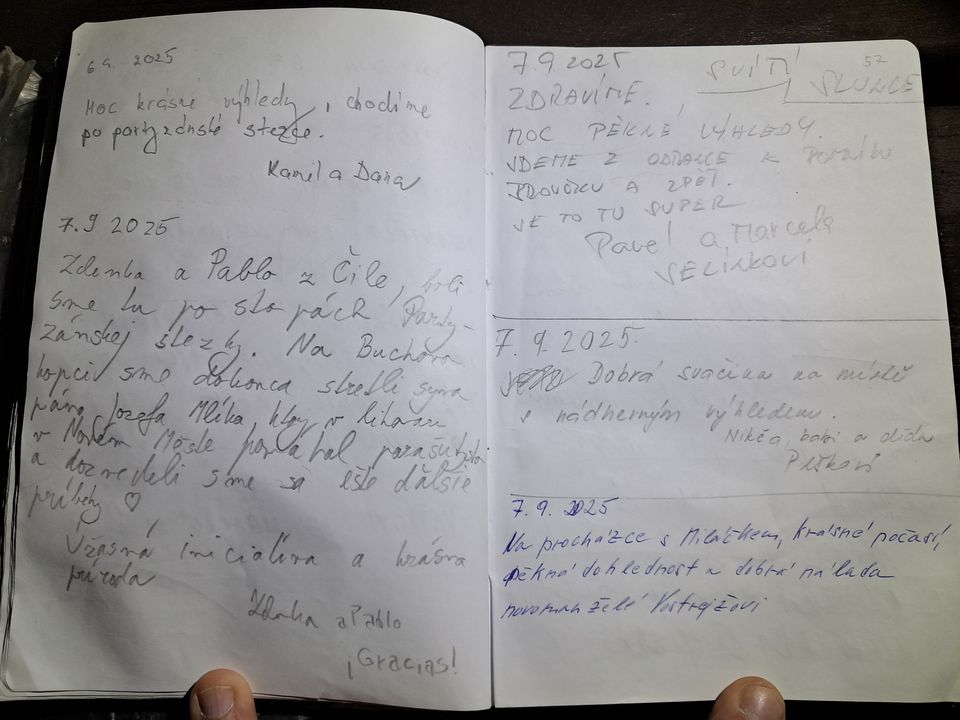 6 9. 2025
Moc krásné výhledy, chodíme
po partyzánské stezce.
Kamil a Dana
7.9 2025
Zdenka a Pablo z Čile, boli
sme tu po stopách Party-
zánskej stezky. Na Buchova
kopci sme dokonca stretli syna
pána Jozefa Mlíka, ktorý v
v Novém Městě pomáhal parašutistom
a dozvedeli sme sa ešte ďalšie
príbehy ♡
Úžasná iniciatíva a krásna
príroda
Zdenka a Pablo
¡Gracias!
57
7.9.2025
SVÍTÍ SLUNCE
ZDRAVÍME.
MOC PĚKNÉ VÝHLEDY.
JDEME Z ODRANCE K
A ZPĚT.
JE TO TU SUPER
Pavel a Marcela
7. 9. 2025.
Dobrá svačina na místě
s nádherným výhledem.
Nikča, babi a děda
Peškovi
7. 9. 2025
Na procházce s Miláčkem, krásné počasí,
pěkná dohlednost a dobrá nálada
novomanželé Vostrejžovi